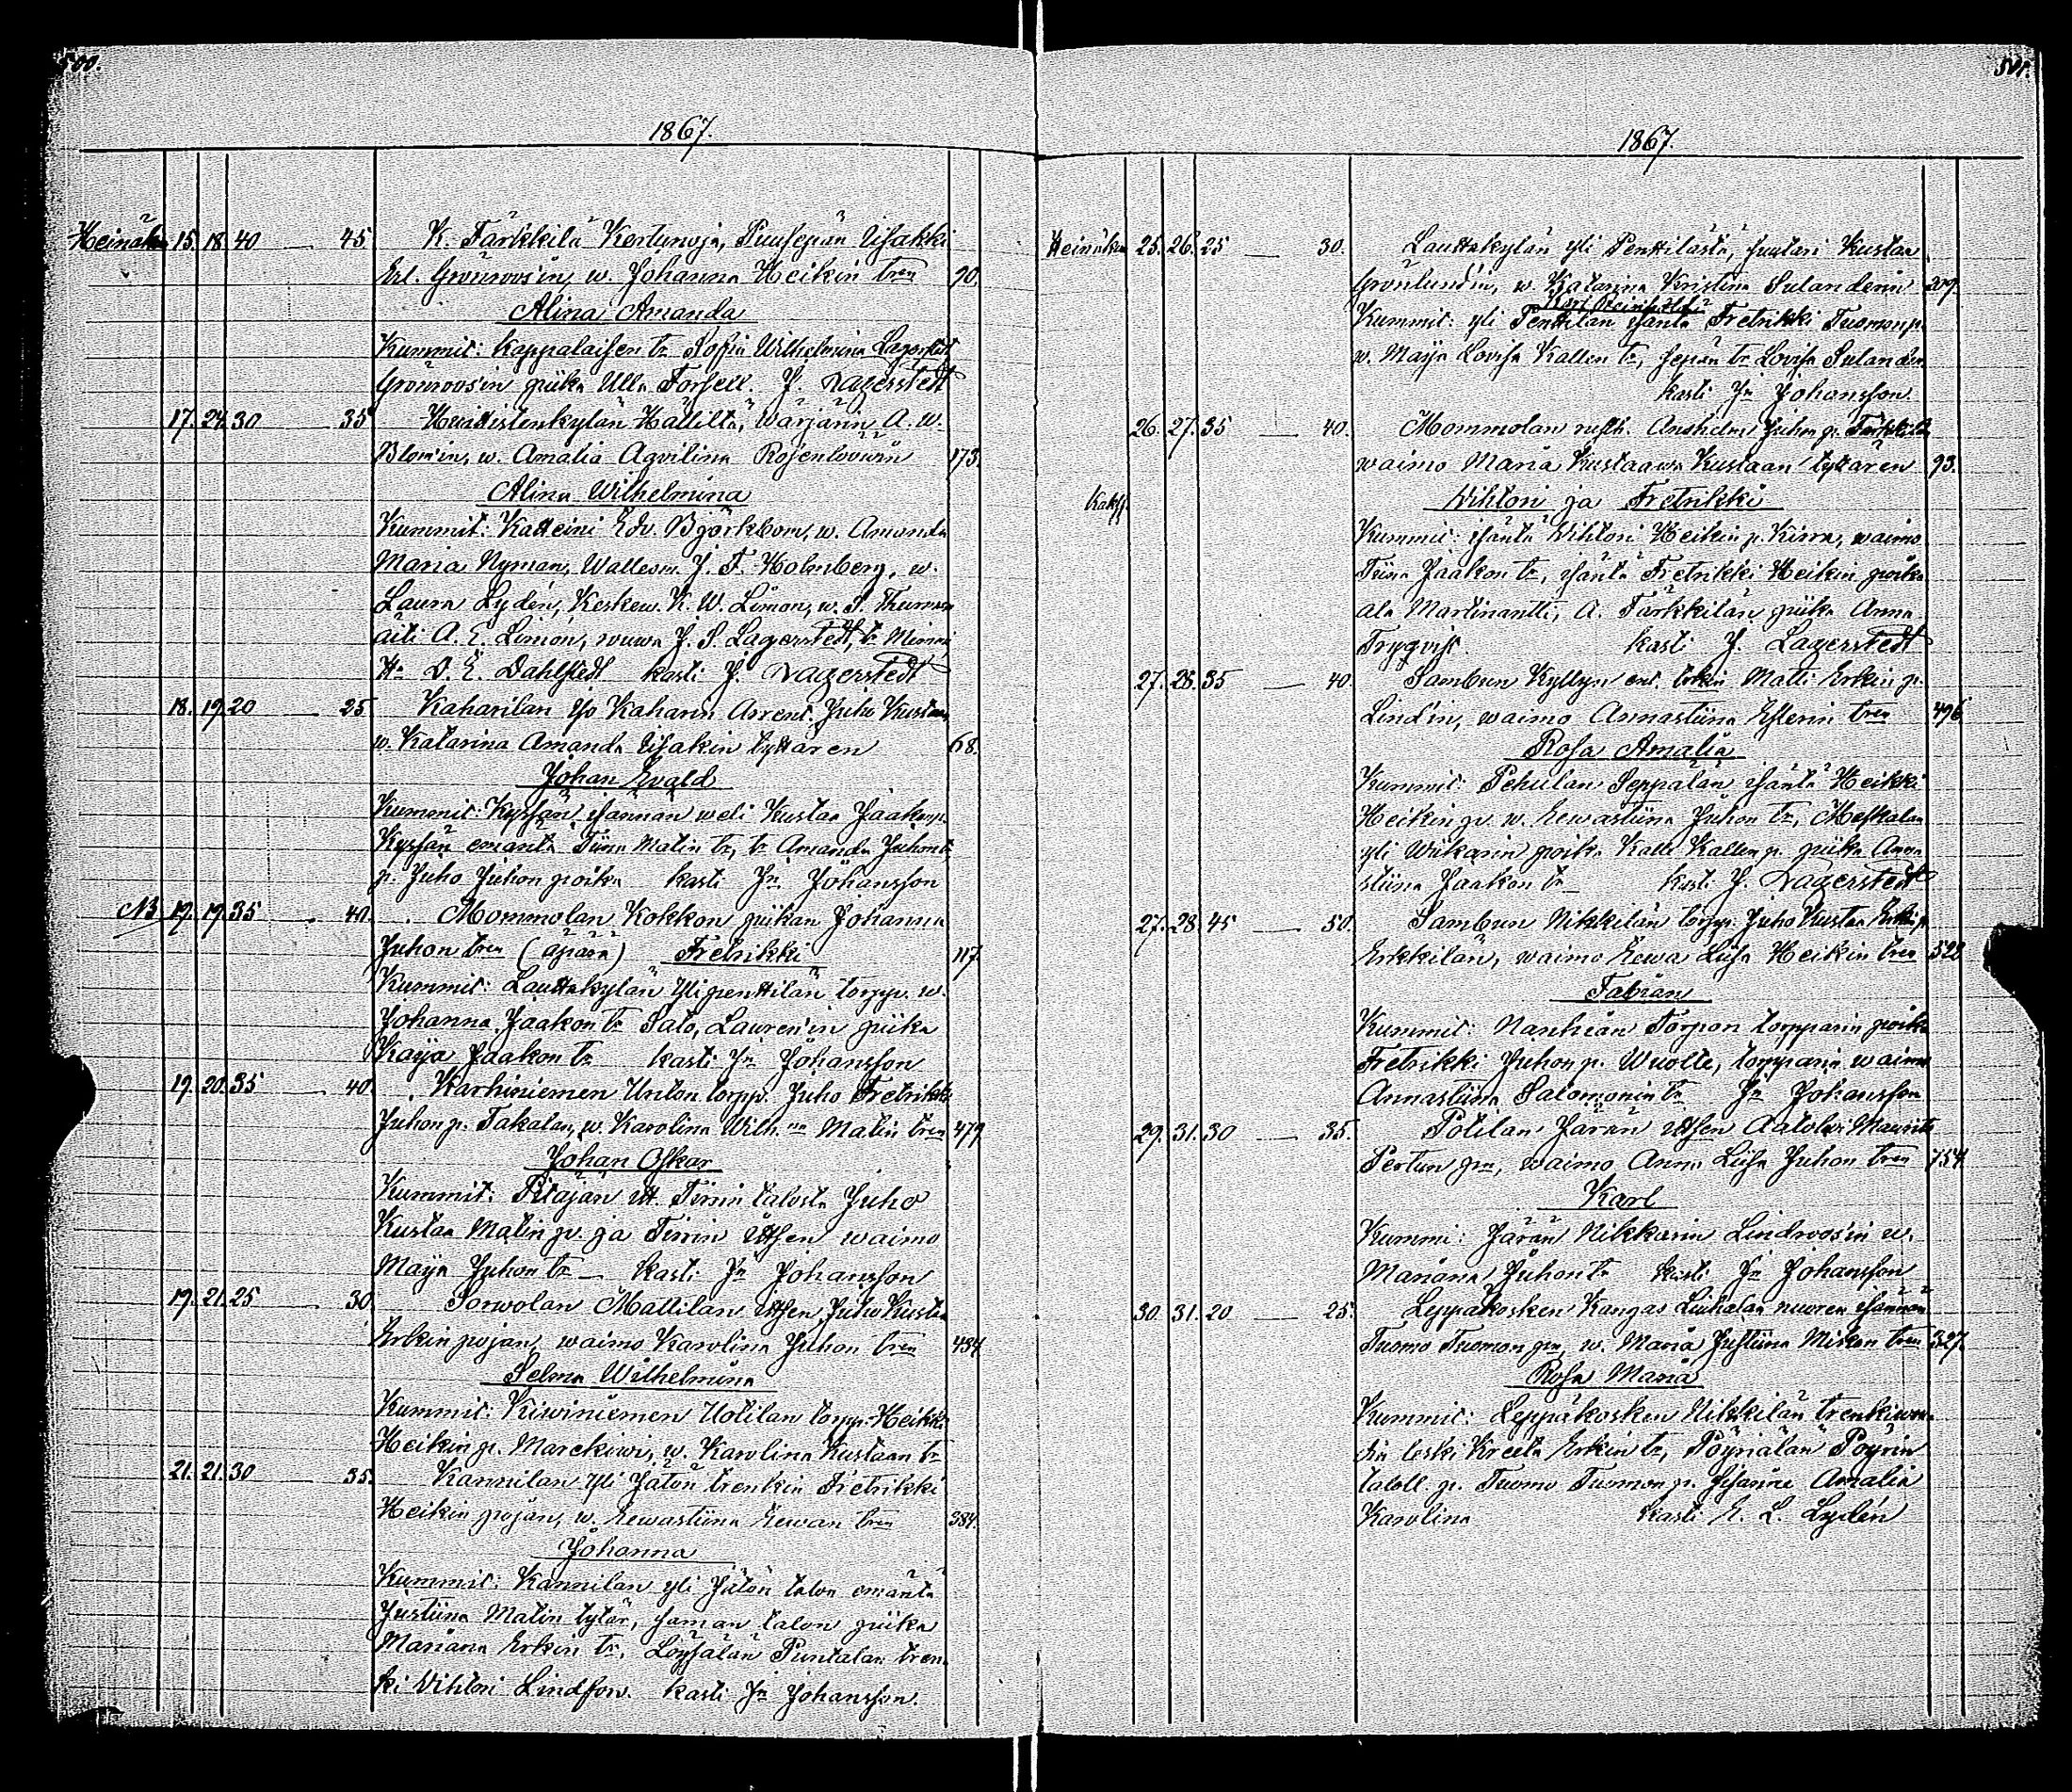 500.
1867.
Heinäkuu 15. 18. 40 — 45 K. Tärkkilä Kertunoja, Puusepän Isakki
Erl. Grönroos'in, w. Johanna Heikin tren 90.
Alina Amanda
Kummit: Kappalaisen tr Sofia Wilhelmina Lagerstedt
Grönroosin piika Ulla Forsell. J. Lagerstedt
17. 24. 30 — 35 Huittistenkylän Hallilta, Wärjärin A. W.
Blom'in, w. Amalia Aqvilina Rosenlöwin 173.
Alina Wilhelmina
Kummit: Katteini Edv. Björkbom, w. Amanda
Maria Nyman, Wallesm. J. F. Holmberg, w.
Laura Lydén, Keskew. K. W. Limon, w. S. Thurman
äiti A. E. Limón, rouwa J. S. Lagerstedt, tr Mimmi
Hr D. E. Dahlstedt kasti J. Lagerstedt
18. 19. 20 — 25 Kaharilan Iso Kaharin Arrent. Juho Kustaan
w. Katarina Amanda Isakin tyttären 68.
Johan Evald
Kummit: Kyssän isännän weli Kustaa Jaakonp.
Kyssän emäntä Tiina Matin tr, tr Amanda Juhontr
p. Juho Juhon poika kasti Jn Johansson
NB 19. 19. 35 — 40. Mommolan Kokkon piikan Johanna
Juhon tren (äpärä) Fretrikki 117
Kummit: Lauttakylän Ylipenttilän torpp. w.
Johanna Jaakon tr Salo, Lauren'in piika
Kaija Jaakon tr kasti Jn Johansson
19. 20. 35 — 40. Karhiniemen Unton torpp. Juho Fretrikki
Juhon p. Takalan, w. Karolina Wilh.na Matin tren 479
Johan Oskar
Kummit: Pitäjän itt. Tirrin talosta Juho
Kustaa Matin p. ja Tirrin ittsen waimo
Maija Juhon tr — kasti Jn Johansson
19. 21. 25 — 30 Sorwolan Mattilan ittsen Juho Kustaa
Erkin pojan, waimo Karolina Juhon tren 484
Selma Wilhelmina
Kummit: Kiwiniemen Uotilan torpp. Heikki
Heikin p. Marckiwi, w. Karolina Kustaan tr
21. 21. 30 — 35. Kannilan Yli Jaton trenkin Fretrikki
Heikin pojan, w. Eewastiina Eewan tren 384.
Johanna
Kummit: Kannilan yli Jaton talon emäntä
Justiina Matin tytär, saman talon piika
Mariana Erkin tr, Löysälän Puntalan tren
ki Vihtori Lindfors. kasti Jn Johansson.
501.
1867.
Heinäkuu 25. 26. 25 — 30. Lauttakylän yli Penttilästä, suutari Kustaa
Grönlundin, w. Katarina Kristina Sulanderin 209.
Karl Reinhold
Kummit: yli Penttilän isäntä Fretrikki Tuomonp.
w. Maija Lovisa Kallen tr, sepän tr Lovisa Sulander
kasti Jn Johansson.
26. 27. 35 — 40. Mommolan rusth. Anshelm Juhon p. Tärkkilä
waimo Maria Kustaawa Kustaan tyttären 93.
Kaks. Vihtori ja Fretrikki
Kummit: isäntä Vihtori Heikin p. Kirra, waimo
Tiina Jaakon tr, isäntä Fretrikki Heikin poika
ala Martinantti, A. Tärkkilän piika Anna
Trygvist. kasti J. Lagerstedt
27. 28. 35 — 40. Sambun Kyllyn ent. trkin Matti Erkin p.
Lind'in, waimo Annastiina Esterin tren 496
Rosa Amalia
Kummit: Pehulan Seppälän isäntä Heikki
Heikin p. w. Eewastiina Juhon tr, Meskalan
yli Wiikarin poika Kalle Kallen p. piika Anna
stiina Jaakon tr — kasti J. Lagerstedt
27. 28. 45 — 50. Sambun Nikkilän torpp. Juho Kustaa Erkin p.
Erkkilän, waimo Eewa Liisa Heikin tren 522
Fabian
Kummit: Nanhian Torpon torpparin poika
Fretrikki Juhon p. Wuolle, torpparin waimo
Annastiina Salomonin tr Jn Johansson
29. 31. 30 — 35. Potilan Järän ittsen Aatolwi Maurits
Pertun pn, waimo Anna Liisa Juhon tren 754
Karl
Kummi: Järän Nikkarin Lindroos'in w.
Mariana Juhon tr kasti Jn Johansson
30. 31. 20 — 25. Leppäkosken Kangas Liuhalan nuoren isännän
Tuomo Tuomon pn, w. Maria Justiina Mikon tren 327.
Rosa Maria
Kummit: Leppäkosken Nikkilän trenkiwou
din leski Kreeta Erkin tr, Pöyriälän Pöyrin
taloll. p. Tuomo Tuomon p. sisarine Amalia
Karolina kasti E. L. Lydén